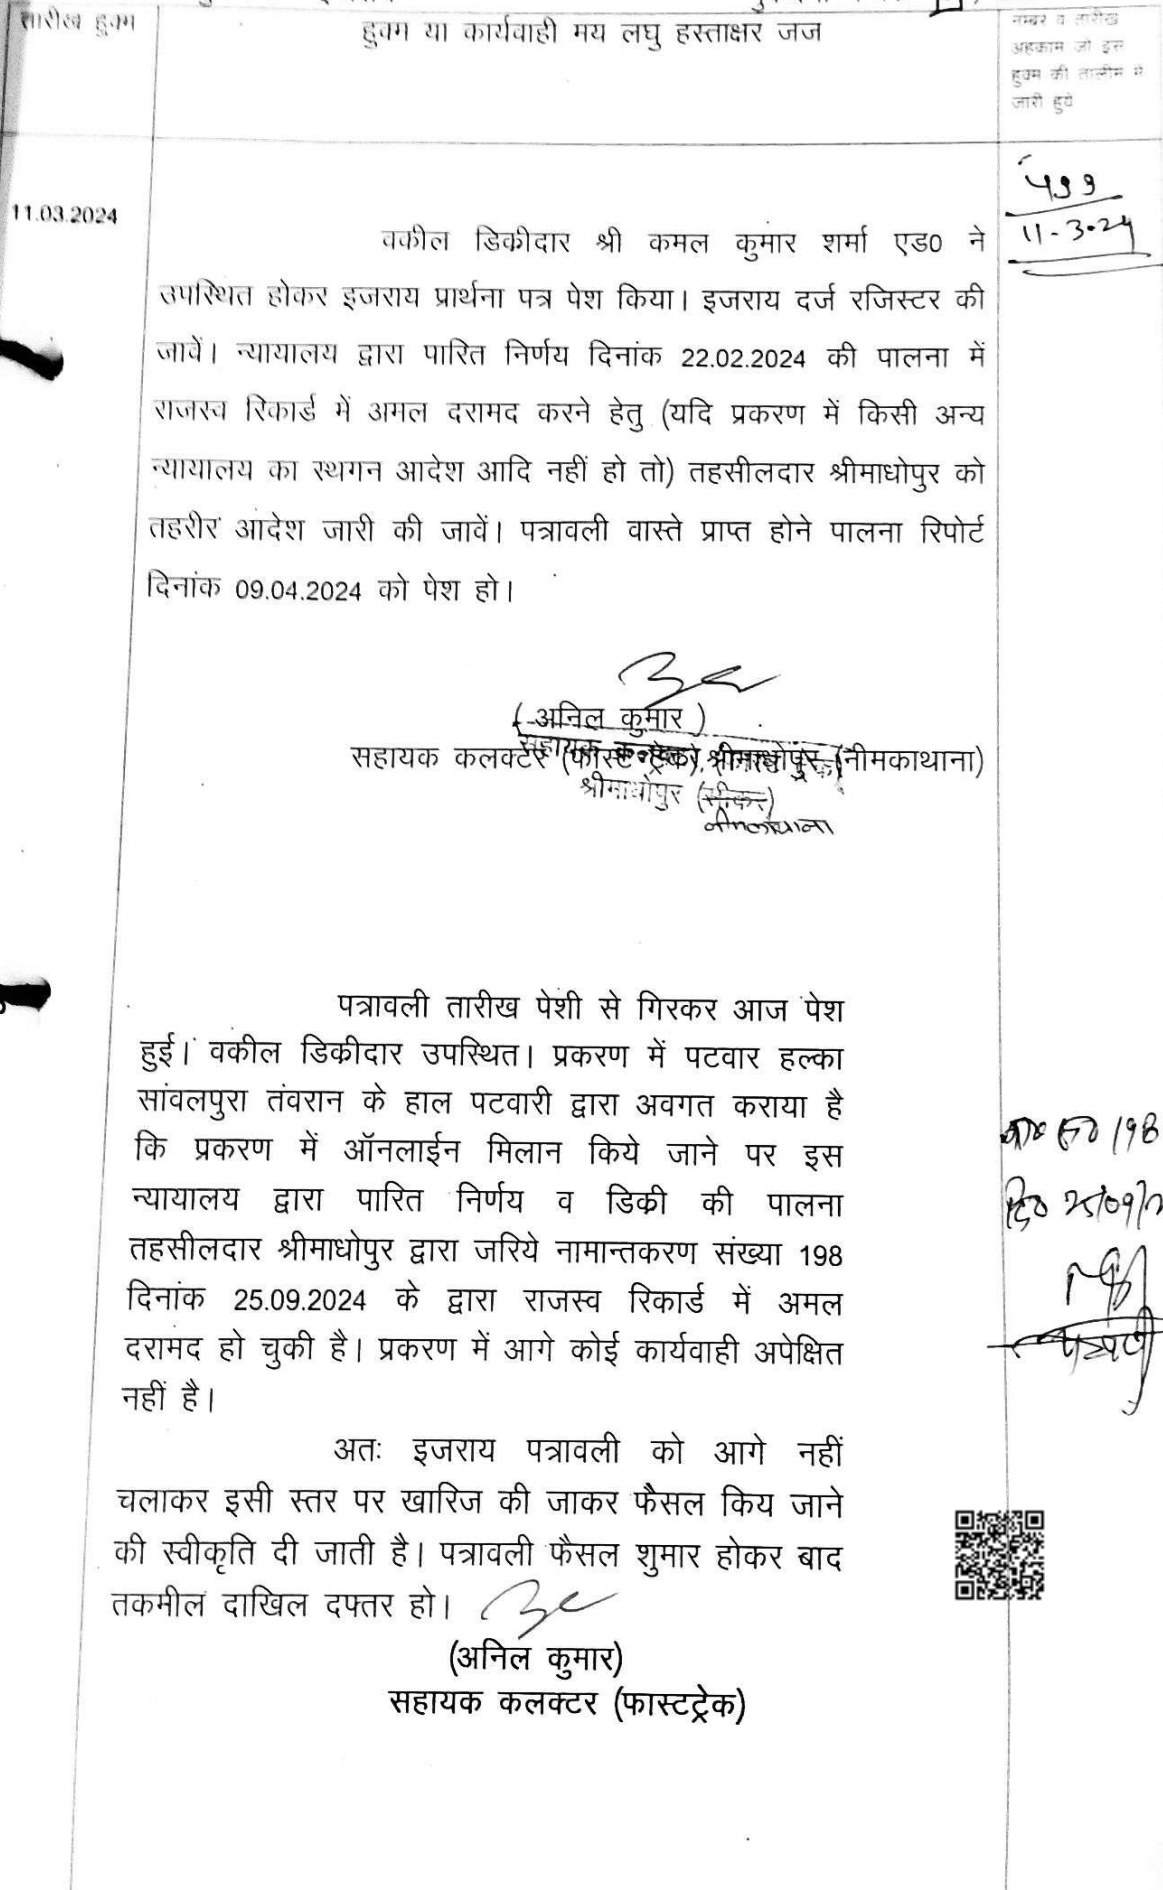 तारीख हुक्म
हुक्म या कार्यवाही मय लघु हस्ताक्षर जज
नम्बर व तारीख
अहकाम जो इस
हुक्म की तालीम मे
जारी हुये
11.03.2024
11-3-24
वकील डिकीदार श्री कमल कुमार शर्मा एड0 ने
उपस्थित होकर इजराय प्रार्थना पत्र पेश किया। इजराय दर्ज रजिस्टर की
जावें। न्यायालय द्वारा पारित निर्णय दिनांक 22.02.2024 की पालना में
राजस्व रिकार्ड में अमल दरामद करने हेतु (यदि प्रकरण में किसी अन्य
न्यायालय का स्थगन आदेश आदि नहीं हो तो) तहसीलदार श्रीमाधोपुर को
तहरीर आदेश जारी की जावें। पत्रावली वास्ते प्राप्त होने पालना रिपोर्ट
दिनांक 09.04.2024 को पेश हो।
( अनिल कुमार )
सहायक कलक्टर (फास्ट ट्रेक), श्रीमाधोपुर (नीमकाथाना)
श्रीमाधोपुर (सीकर)
नीमकाथाना
पत्रावली तारीख पेशी से गिरकर आज पेश
हुई। वकील डिकीदार उपस्थित। प्रकरण में पटवार हल्का
सांवलपुरा तंवरान के हाल पटवारी द्वारा अवगत कराया है
कि प्रकरण में ऑनलाईन मिलान किये जाने पर इस
न्यायालय द्वारा पारित निर्णय व डिकी की पालना
तहसीलदार श्रीमाधोपुर द्वारा जरिये नामान्तकरण संख्या 198
दिनांक 25.09.2024 के द्वारा राजस्व रिकार्ड में अमल
दरामद हो चुकी है। प्रकरण में आगे कोई कार्यवाही अपेक्षित
नहीं है।
198
दि0 25/09/2
अतः इजराय पत्रावली को आगे नहीं
चलाकर इसी स्तर पर खारिज की जाकर फैसल किय जाने
की स्वीकृति दी जाती है। पत्रावली फैसल शुमार होकर बाद
तकमील दाखिल दफ्तर हो।
(अनिल कुमार)
सहायक कलक्टर (फास्टट्रेक)